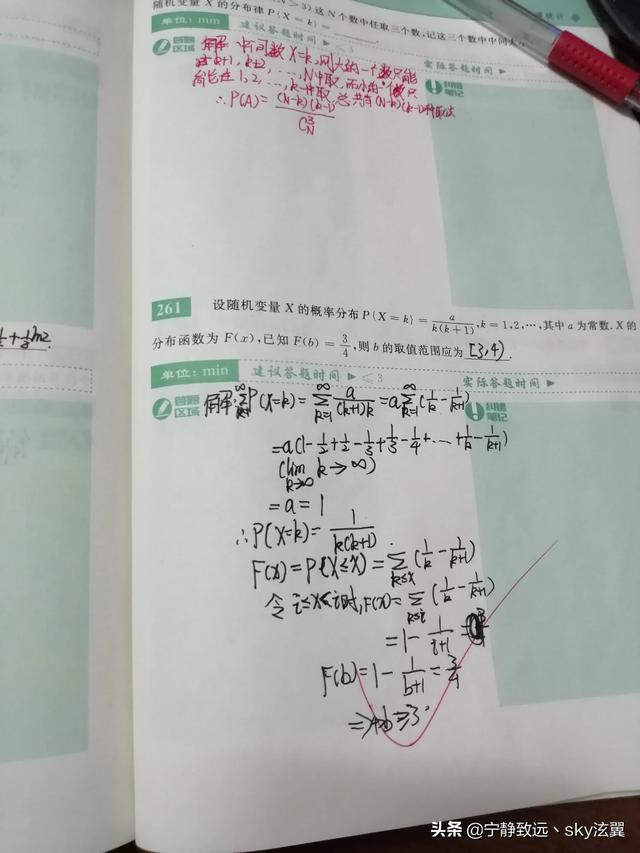 随机变量 X 的分布律 P{X=k}=
>3)这N个数中任取三个数,记这三个数中中间大
单位:min 建议答题时间 ▶ ≤3 实际答题时间 ▶
答题区域
纠错笔记
解:中间数X=k,则大的一个数只能
在k+1,k+2,…,N中取,而小的一个数只
能在1,2,…,k-1中取,总共有(N-k)(k-1)种取法
∴P(A)=(N-k)(k-1)/C_N^3
261 设随机变量 X 的概率分布 P{X=k}=a/k(k+1),k=1,2,…,其中 a 为常数. X 的
分布函数为 F(x),已知 F(b)=3/4,则 b 的取值范围应为 [3,4).
单位:min 建议答题时间 ▶ ≤3 实际答题时间 ▶
答题区域
纠错笔记
解:∑_{k=1}^∞P(X=k)=∑_{k=1}^∞ a/(k+1)k=a∑_{k=1}^∞(1/k-1/k+1)
=a(1-1/2+1/2-1/3+1/3-1/4+…+1/k-1/k+1)
(lim_{k→∞} k→∞)
=a=1
∴P(X=k)=1/k(k+1)
F(x)=P{X≤x}=∑_{k≤x}(1/k-1/k+1)
令i≤x<i时,F(x)=∑_{k≤i}(1/k-1/k+1)
=1-1/i+1=
F(b)=1-1/b+1=3/4
头条 @宁静致远丶sky泫翼